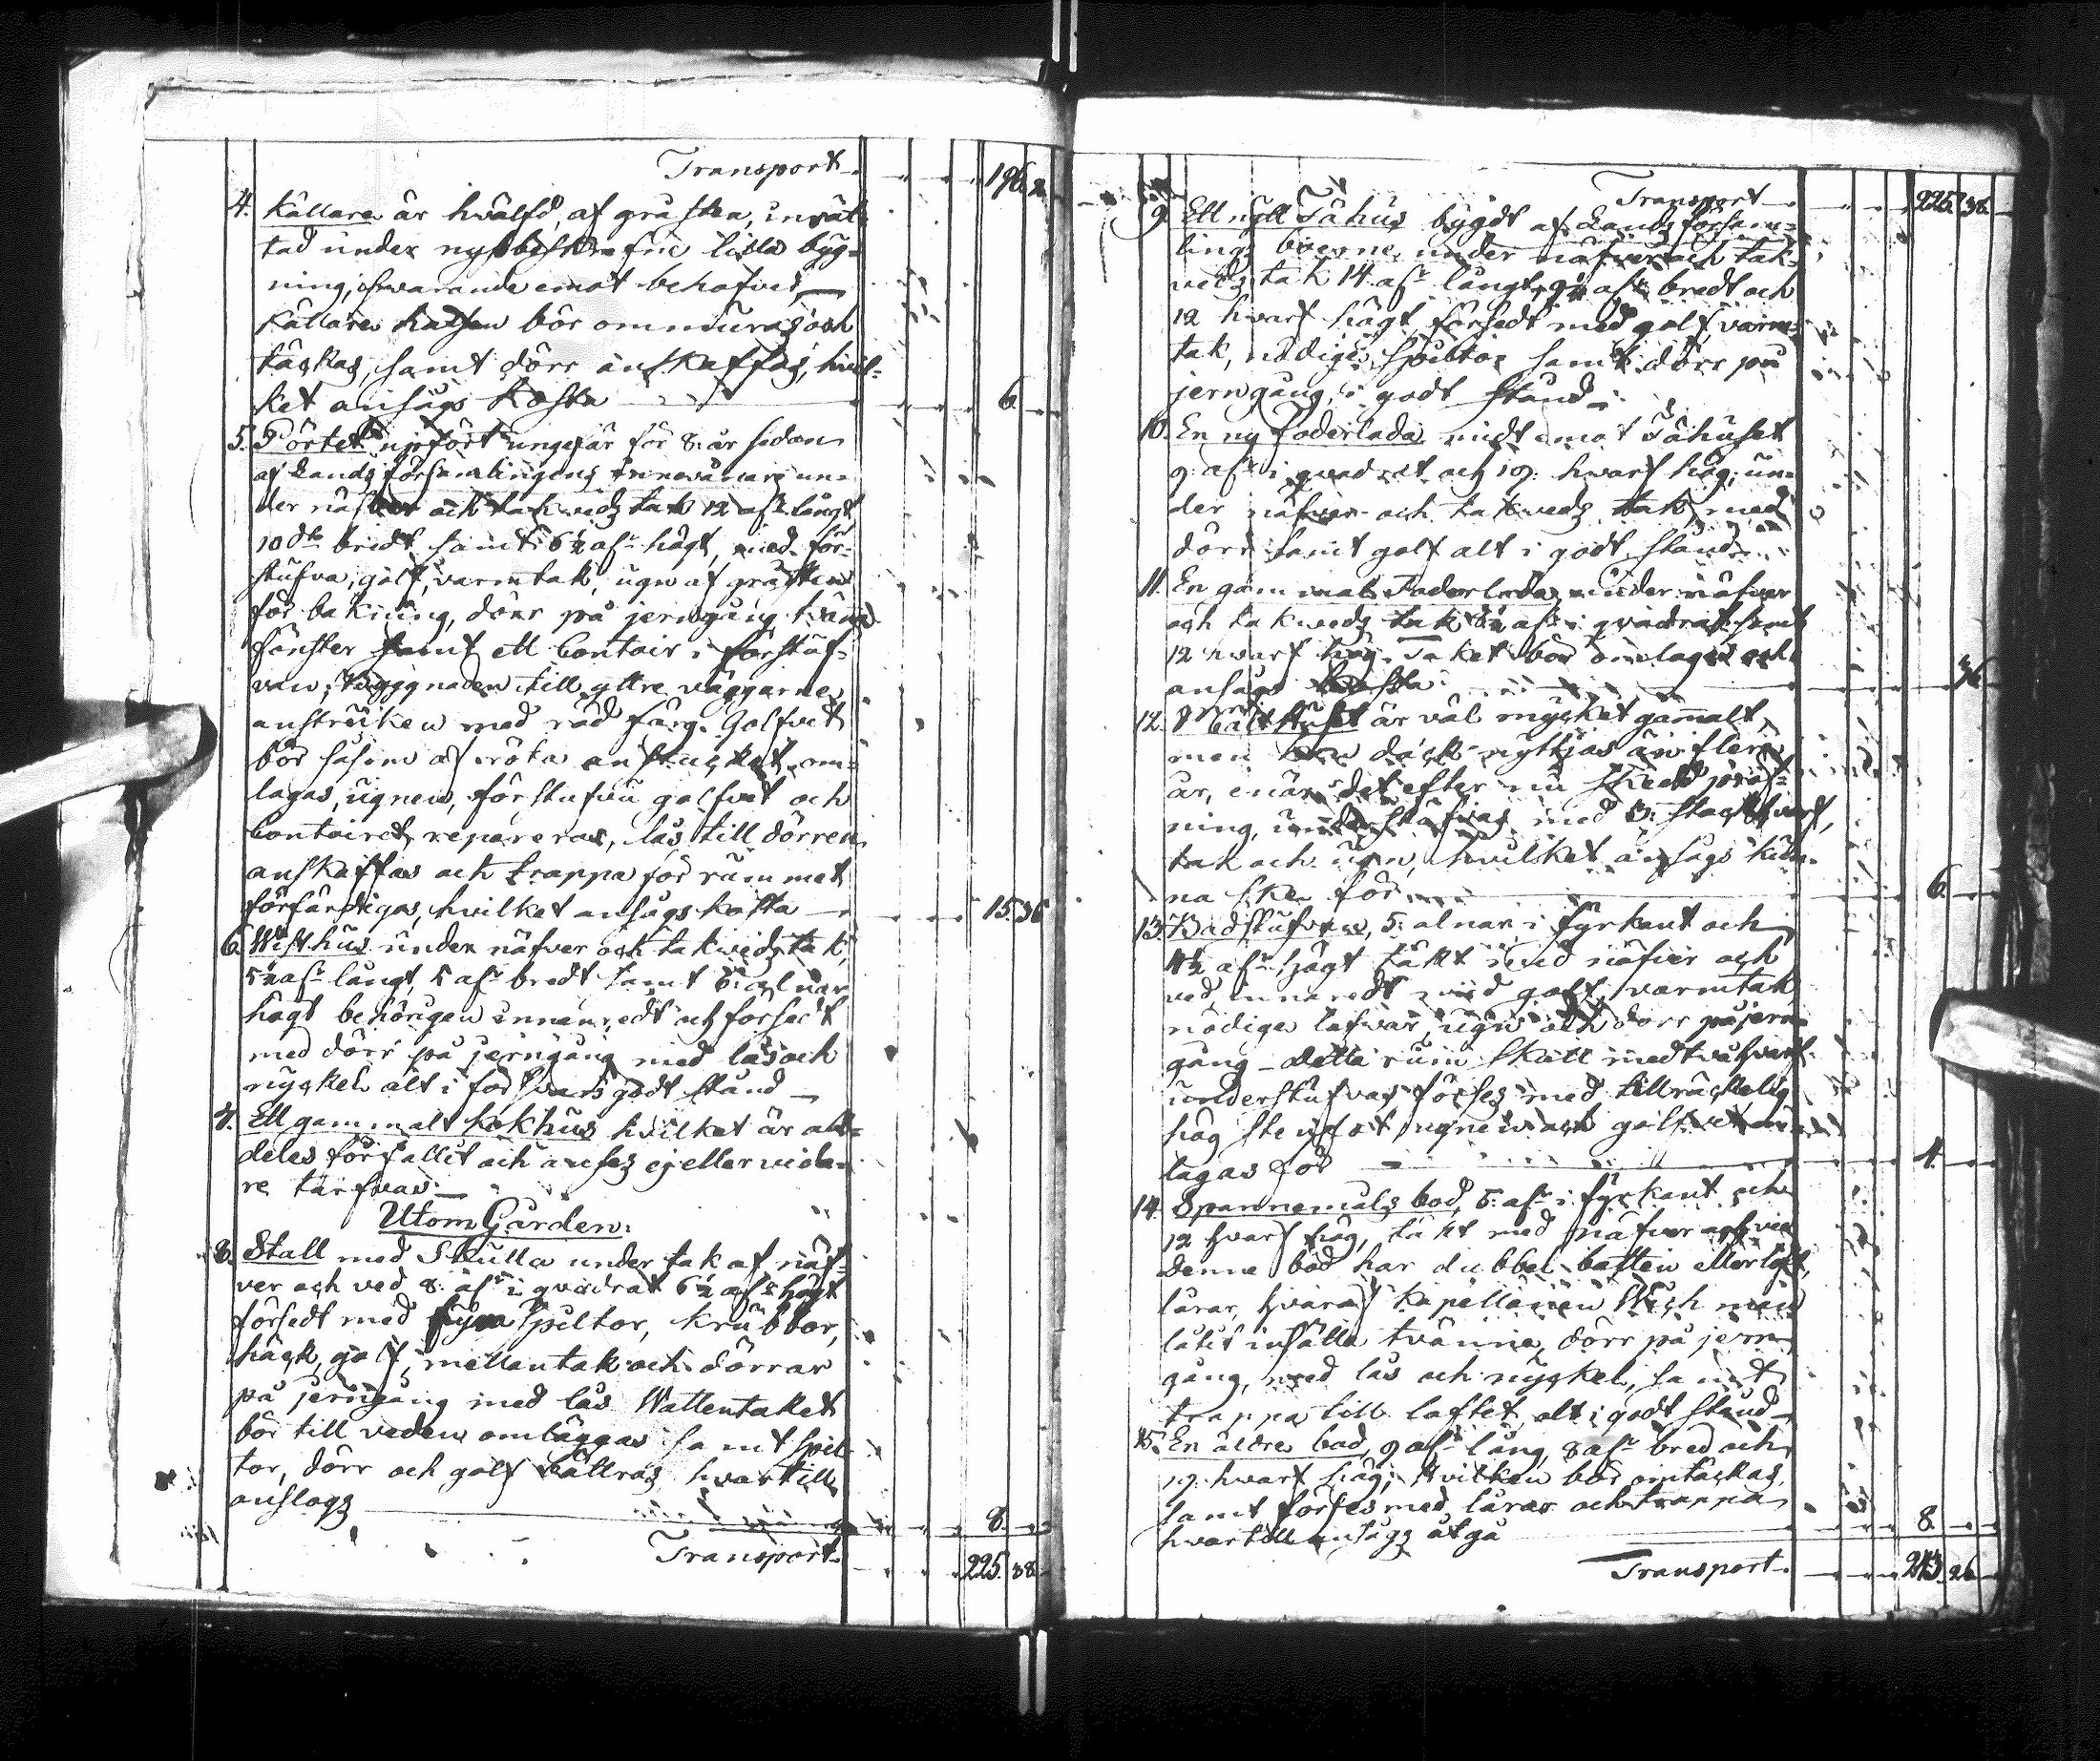 Transport 196. 2
4. Källare är hvälfd, af gråsten, inrät-
tad under nyssbeskrefne lilla byg-
ning, svarande emot behofvet,
Källare halsen bör ommuras och
täckas, samt dörr anskaffas, hvil-
ket ansågs kosta 6.
5. Pörtet uppfört ungefär för 8: år sedan
af Landsförsamlingens Innevånare un-
der näfver och takveds tak 12 aln långt
10 do bredt samt 6½ aln högt, med för-
stufva, golf, varmtak, ugn af gråsten
för bakning, dörr på jerngång, tvänne
fönster samt ett Contoir i förstuf-
van; Byggnaden till yttre väggarne
anstruken med röd färg. Golfvet
bör såsom af röta anstucket om-
lagas, ugnen, förstufvu golfvet och
Contoiret repareras, lås till dörren
anskaffas och trappa för rummet
förfärdigas, hvilket ansågs kosta 15. 36
6. Wisthus under näfver och takveds tak,
5½ aln långt, 5 aln bredt samt 6: alnar
högt behörigen innanredt och försedt
med dörr på jerngång med lås och
nyckel alt i försvars godt stånd
7. Ett gammalt kokhus hvilket är all-
deles förfallit och anses ej eller vida-
re tarfvas.
Utom Gården.
8. Stall med Skulla under tak af näf-
ver och ved 8: aln i qvadrat 6½ aln högt
försedt med fyra Spiltor, krubbor,
häck, golf, mellantak och dörrar
på jerngång med lås Wattentaket
bör till veden omläggas samt spil-
tor, dörr och golf bättras, hvartill
anslogs 8.
Transport 225. 38
Transport 225. 38
9. Ett nytt Fähus bygdt af Landsförsam-
lings boerne, under näfver och tak-
veds tak 14 aln långt, 9½ aln bredt och
12 hvarf högt, försedt med golf, varm-
tak, nödige spiltor samt dörr på
jerngång, i godt stånd
10. En ny foderlada midt emot Fähuset
9. aln i qvadrat och 19. hvarf hög, un-
der näfver och takveds tak, med
dörr samt golf alt i godt stånd
11. En gammal Foderlada, under näfver
och takveds tak 8½ aln i qvadrat samt
12 hvarf hög. Taket bör omlagas och
ansågs kosta 36
12. är väl mycket gammalt,
men kan dock nyttjas än flere
år, enär det efter nu skedd pröf-
ning, understufvas med 3: stockhvarf,
tak och ugn, hvilket ansågs kun-
na ske för 6.
13. Badstufvan, 5: alnar i fyrkant och
4½ aln högt täkt med näfver och
ved, innanredt med golf, varmtak
nödiga lafvar, ugn och dörr på jern-
gång – Detta rum skall med två hvarf
understufvas förses med tillräckelig
hög stenfot ugnen och golfvet om-
lagas för 4.
14. Spannemåls bod, 5: aln i fyrkant och
12 hvarf hög, täkt med näfver och ved
Denne bod har dubbel batten eller loft,
lårar, hvaraf Kapellanen Wich men
låtit insätta tvänne, dörr på jern-
gång, med lås och nyckel, samt
trappa till loftet, alt i godt stånd
15. En äldre bod, 9 aln lång, 8 aln bred och
19. hvarf hög; Hvilken bör omtäckas,
samt förses med lårar och trappa,
hvartill ansågs åtgå 8.
Transport 243. 26